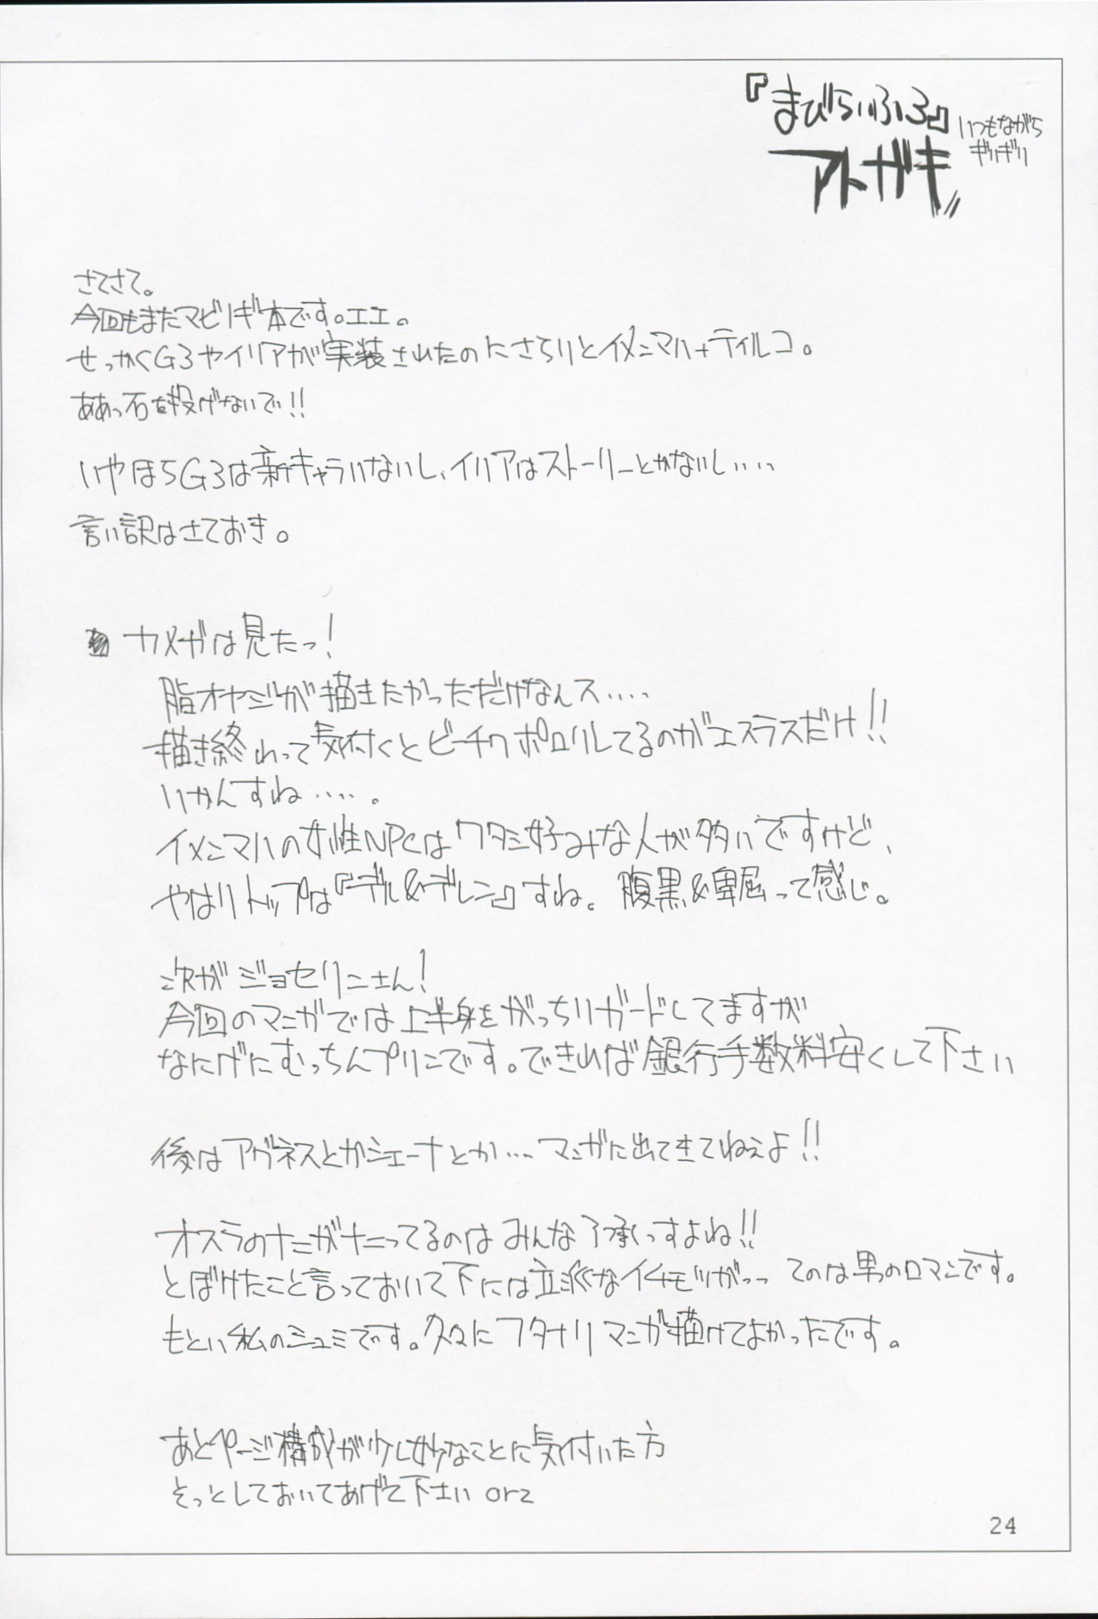 『まびらいふ3』
アトガキ
いつもながら
ギリギリ
さてさて。
今回もまたマビノギ本です。エエ。
せっかくG3やイリアが実装されたのにさらりとイメンマハ+ティルコ。
ああっ石を投げないで!!
いやほらG3は新キャラいないし、イリアはストーリーとかないし‥‥
言い訳はさておき。
カメザは見たっ!
脂オヤジが描きたかっただけなんス‥‥
描き終わって気付くとビーチクポロリしてるのがエスラスだけ!!
いかんすね‥‥。
イメンマハの女性NPCはワタシ好みな人が多いですけど、
やはりトップは『デル&デレン』すね。腹黒&卑屈って感じ。
次がジョセリンさん!
今回のマンガでは上半身をがっちりガードしてますが
なにげにむっちんプリンです。できれば銀行手数料安くして下さい
後はアグネスとかシェーナとか‥‥マンガに出て来てねえよ!!
オスラのナニがナニってるのはみんな了承っすよね!!
とぼけたこと言っておいて下には立派なイチモツがっっ てのは男のロマンです。
もとい私のシュミです。久々にフタナリマンガ描けてよかったです。
あとページ構成が少し妙なことに気付いた方
そっとしておいてあげて下さい orz
24